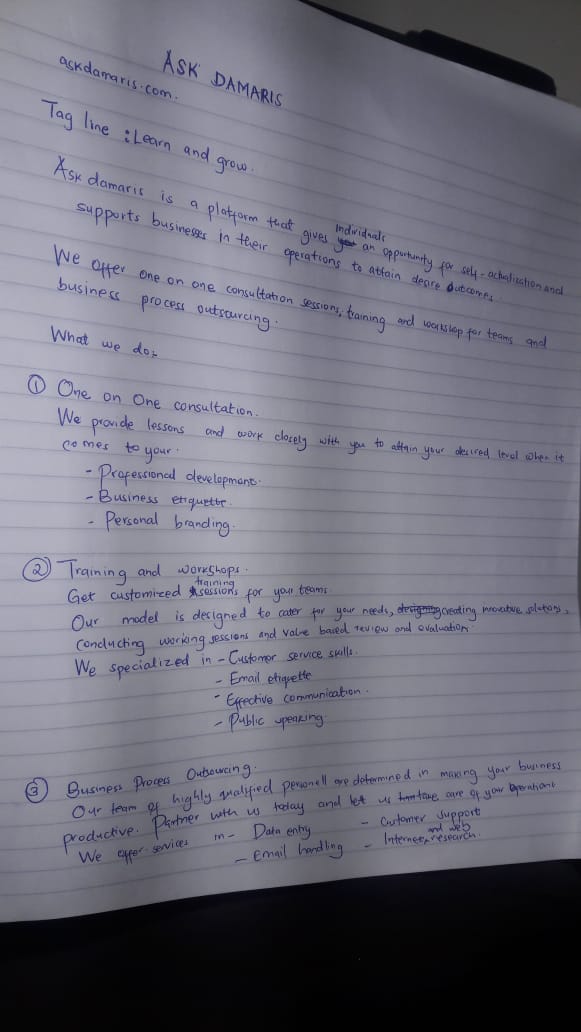 ASK DAMARIS
askdamaris.com.
Tag line : Learn and grow.
Ask damaris is a platform that gives individuals an opportunity for self-actualization and
supports businesses in their operations to attain desire outcomes
We offer one on one consultation sessions, training and workshop for teams and
business process outsourcing.
What we do:
① One on One consultation.
We provide lessons and work closely with you to attain your desired level when it
comes to your.
- Professional development.
- Business etiquette.
- Personal branding.
② Training and workshops.
Get customized training sessions for your teams
Our model is designed to cater for your needs, creating innovative solutions,
Conducting working sessions and value based review and evaluation.
We specialized in - Customer service skills.
- Email etiquette
- Effective communication.
- Public speaking.
③ Business Process Outsourcing.
Our team of highly qualified personell are determined in making your business
productive. Partner with us today and let us take care of your operations
We offer services in - Data entry - Customer support
- Email handling - Internet and web research.